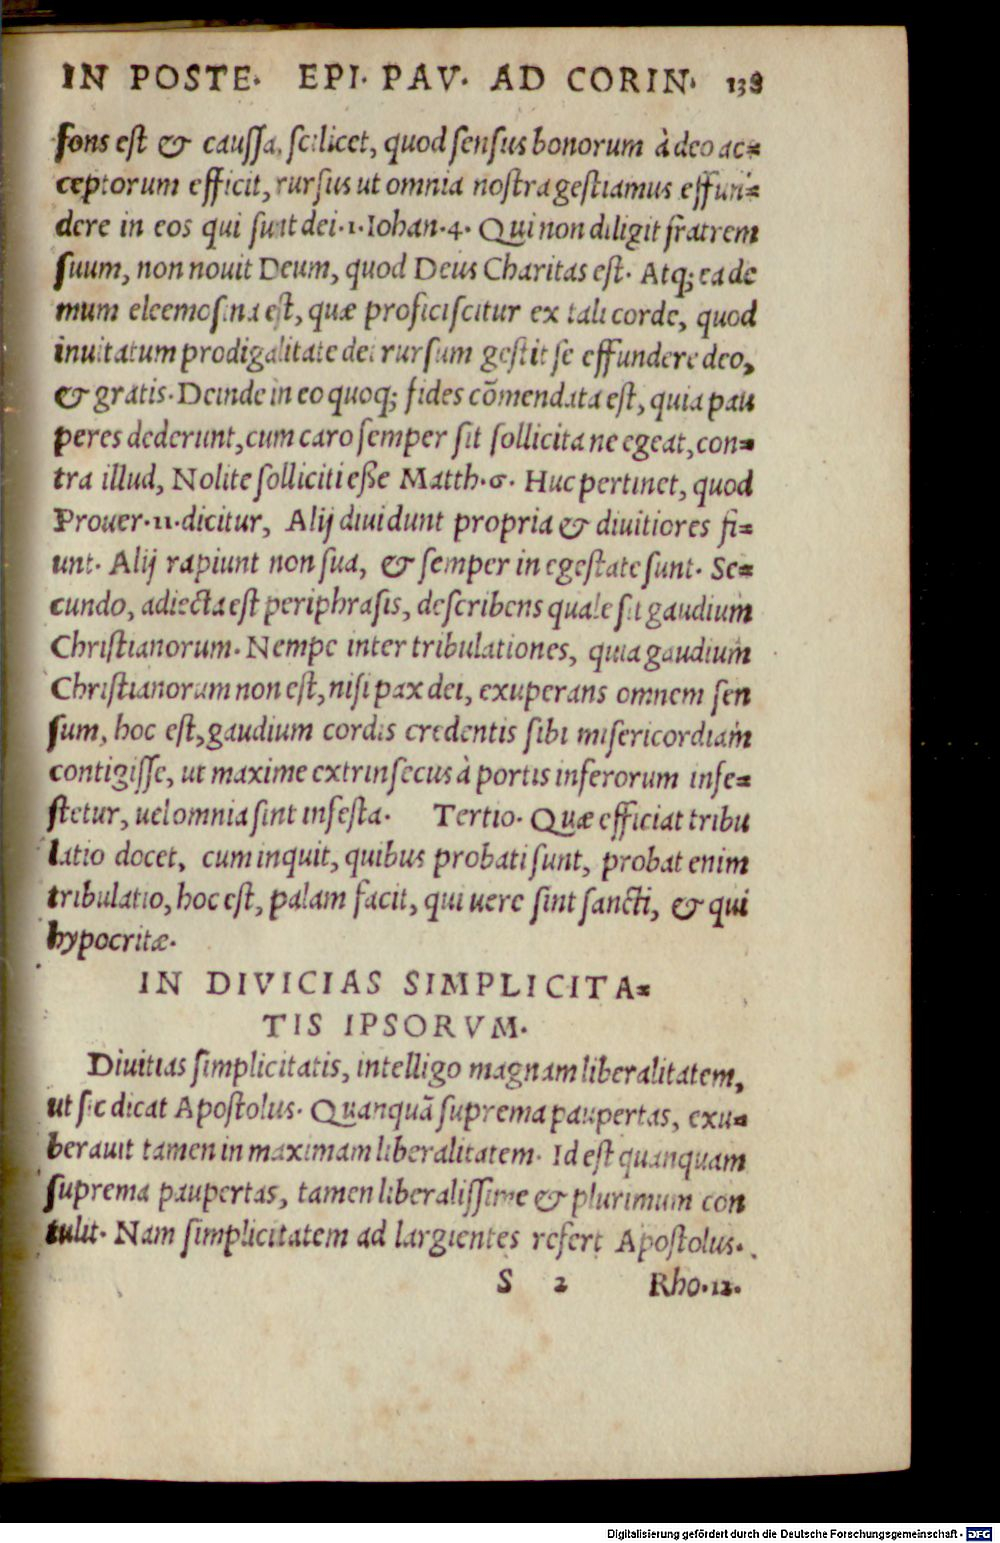 IN POSTE. EPI. PAV. AD CORIN. 138
fons est & caussa, scilicet, quod sensus bonorum à deo ac=
ceptorum efficit, rursus ut omnia nostra gestiamus effun=
dere in eos qui sunt dei.1.Iohan.4. Qui non diligit fratrem
suum, non nouit Deum, quod Deus Charitas est. Atq; ea de
mum eleemosina est, quæ proficiscitur ex tali corde, quod
inuitatum prodigalitate dei rursum gestit se effundere deo,
& gratis. Deinde in eo quoq; fides cōmendata est, quia pau
peres dederunt, cum caro semper sit sollicita ne egeat, con=
tra illud, Nolite solliciti eße Matth.6. Huc pertinet, quod
Prouer.11.dicitur, Alij diuidunt propria & diuitiores fi=
unt. Alij rapiunt non sua, & semper in egestate sunt. Se=
cundo, adiecta est periphrasis, describens quale sit gaudium
Christianorum. Nempe inter tribulationes, quia gaudium
Christianorum non est, nisi pax dei, exuperans omnem sen
sum, hoc est, gaudium cordis credentis sibi misericordiam
contigisse, ut maxime extrinsecus à portis inferorum infe=
stetur, uel omnia sint infesta. Tertio. Quæ efficiat tribu
latio docet, cum inquit, quibus probati sunt, probat enim
tribulatio, hoc est, palam facit, qui uere sint sancti, & qui
hypocritæ.
IN DIVICIAS SIMPLICITA=
TIS IPSORVM.
Diuitias simplicitatis, intelligo magnam liberalitatem,
ut sic dicat Apostolus. Quanquā suprema paupertas, exu=
berauit tamen in maximam liberalitatem. Id est quanquam
suprema paupertas, tamen liberalissime & plurimum con
tulit. Nam simplicitatem ad largientes refert Apostolus.
S 2 Rho.12.
Digitalisierung gefördert durch die Deutsche Forschungsgemeinschaft - DFG